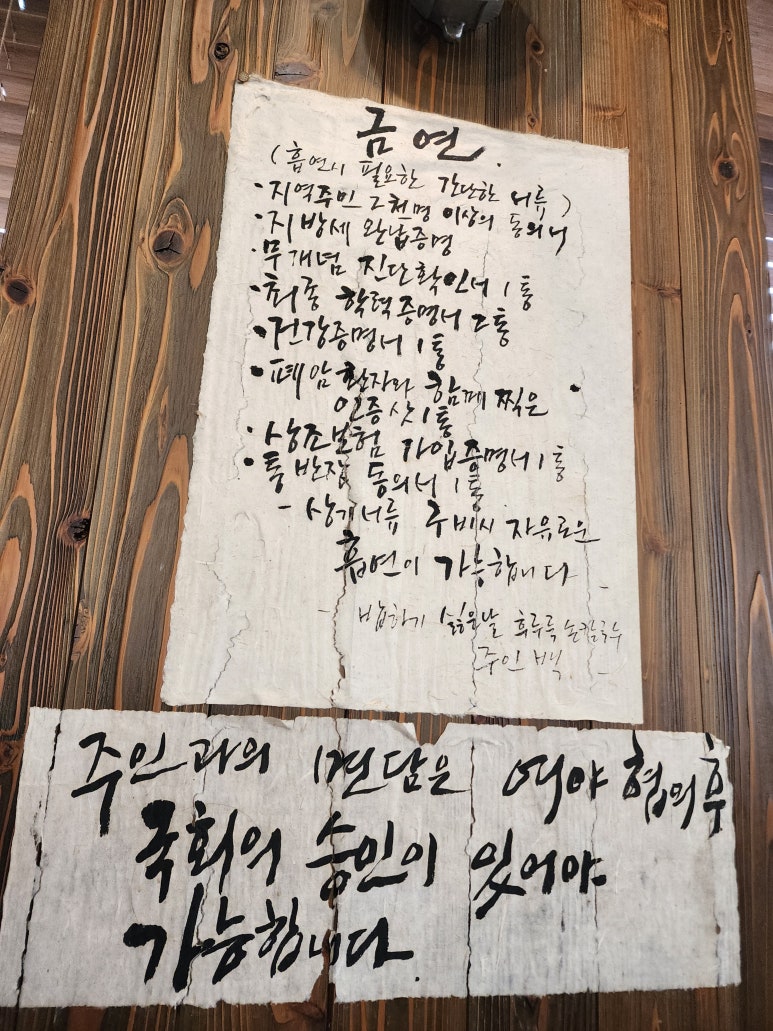 금연.
(흡연시 필요한 간단한 서류)
· 지역주민 2천명 이상의 동의서
· 지방세 완납증명
· 무개념 진단확인서 1통
· 최종 학력증명서 2통
· 건강증명서 1통
· 폐암 환자와 함께 찍은
인증샷 1통
· 상조보험 가입증명서 1통
· 통반장 동의서 1통
- 상기서류 구비시 자유로운
흡연이 가능합니다 -
- 밥하기 싫은날 후루룩 손칼국수
주인 백. -
주인과의 면담은 여야 협의후
국회의 승인이 있어야
가능합니다.